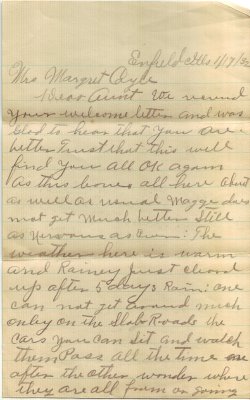 Enfield Ills 1/17/30
Mrs Margret
Dear Aunt We received
your welcome letter and was
Glad to hear that you are
better Trust that this will
find you all OK again
as this leaves all here about
as well as usual Magge does
not get much better still
as Nervous as Ever: The
weather here is warm
and Rainey Just cleard
up after 5 days Rain: one
can not get around much
only on the Slab Roads the
cars you can Sit and watch
them Pass all the time one
after the other wonder where
they are all from or going